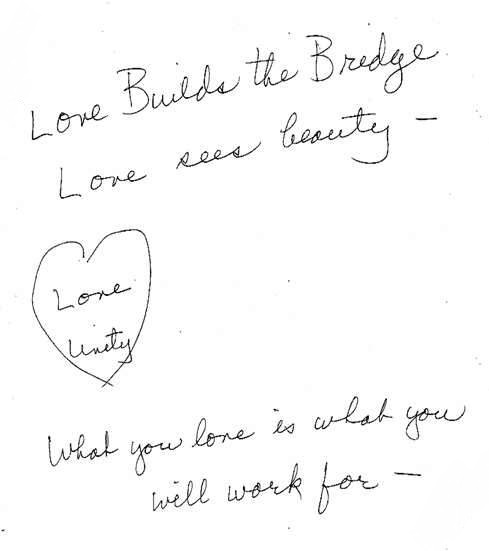 Love Builds the Bredge
Love sees beauty –
Love
Unity
What you love is what you
will work for –